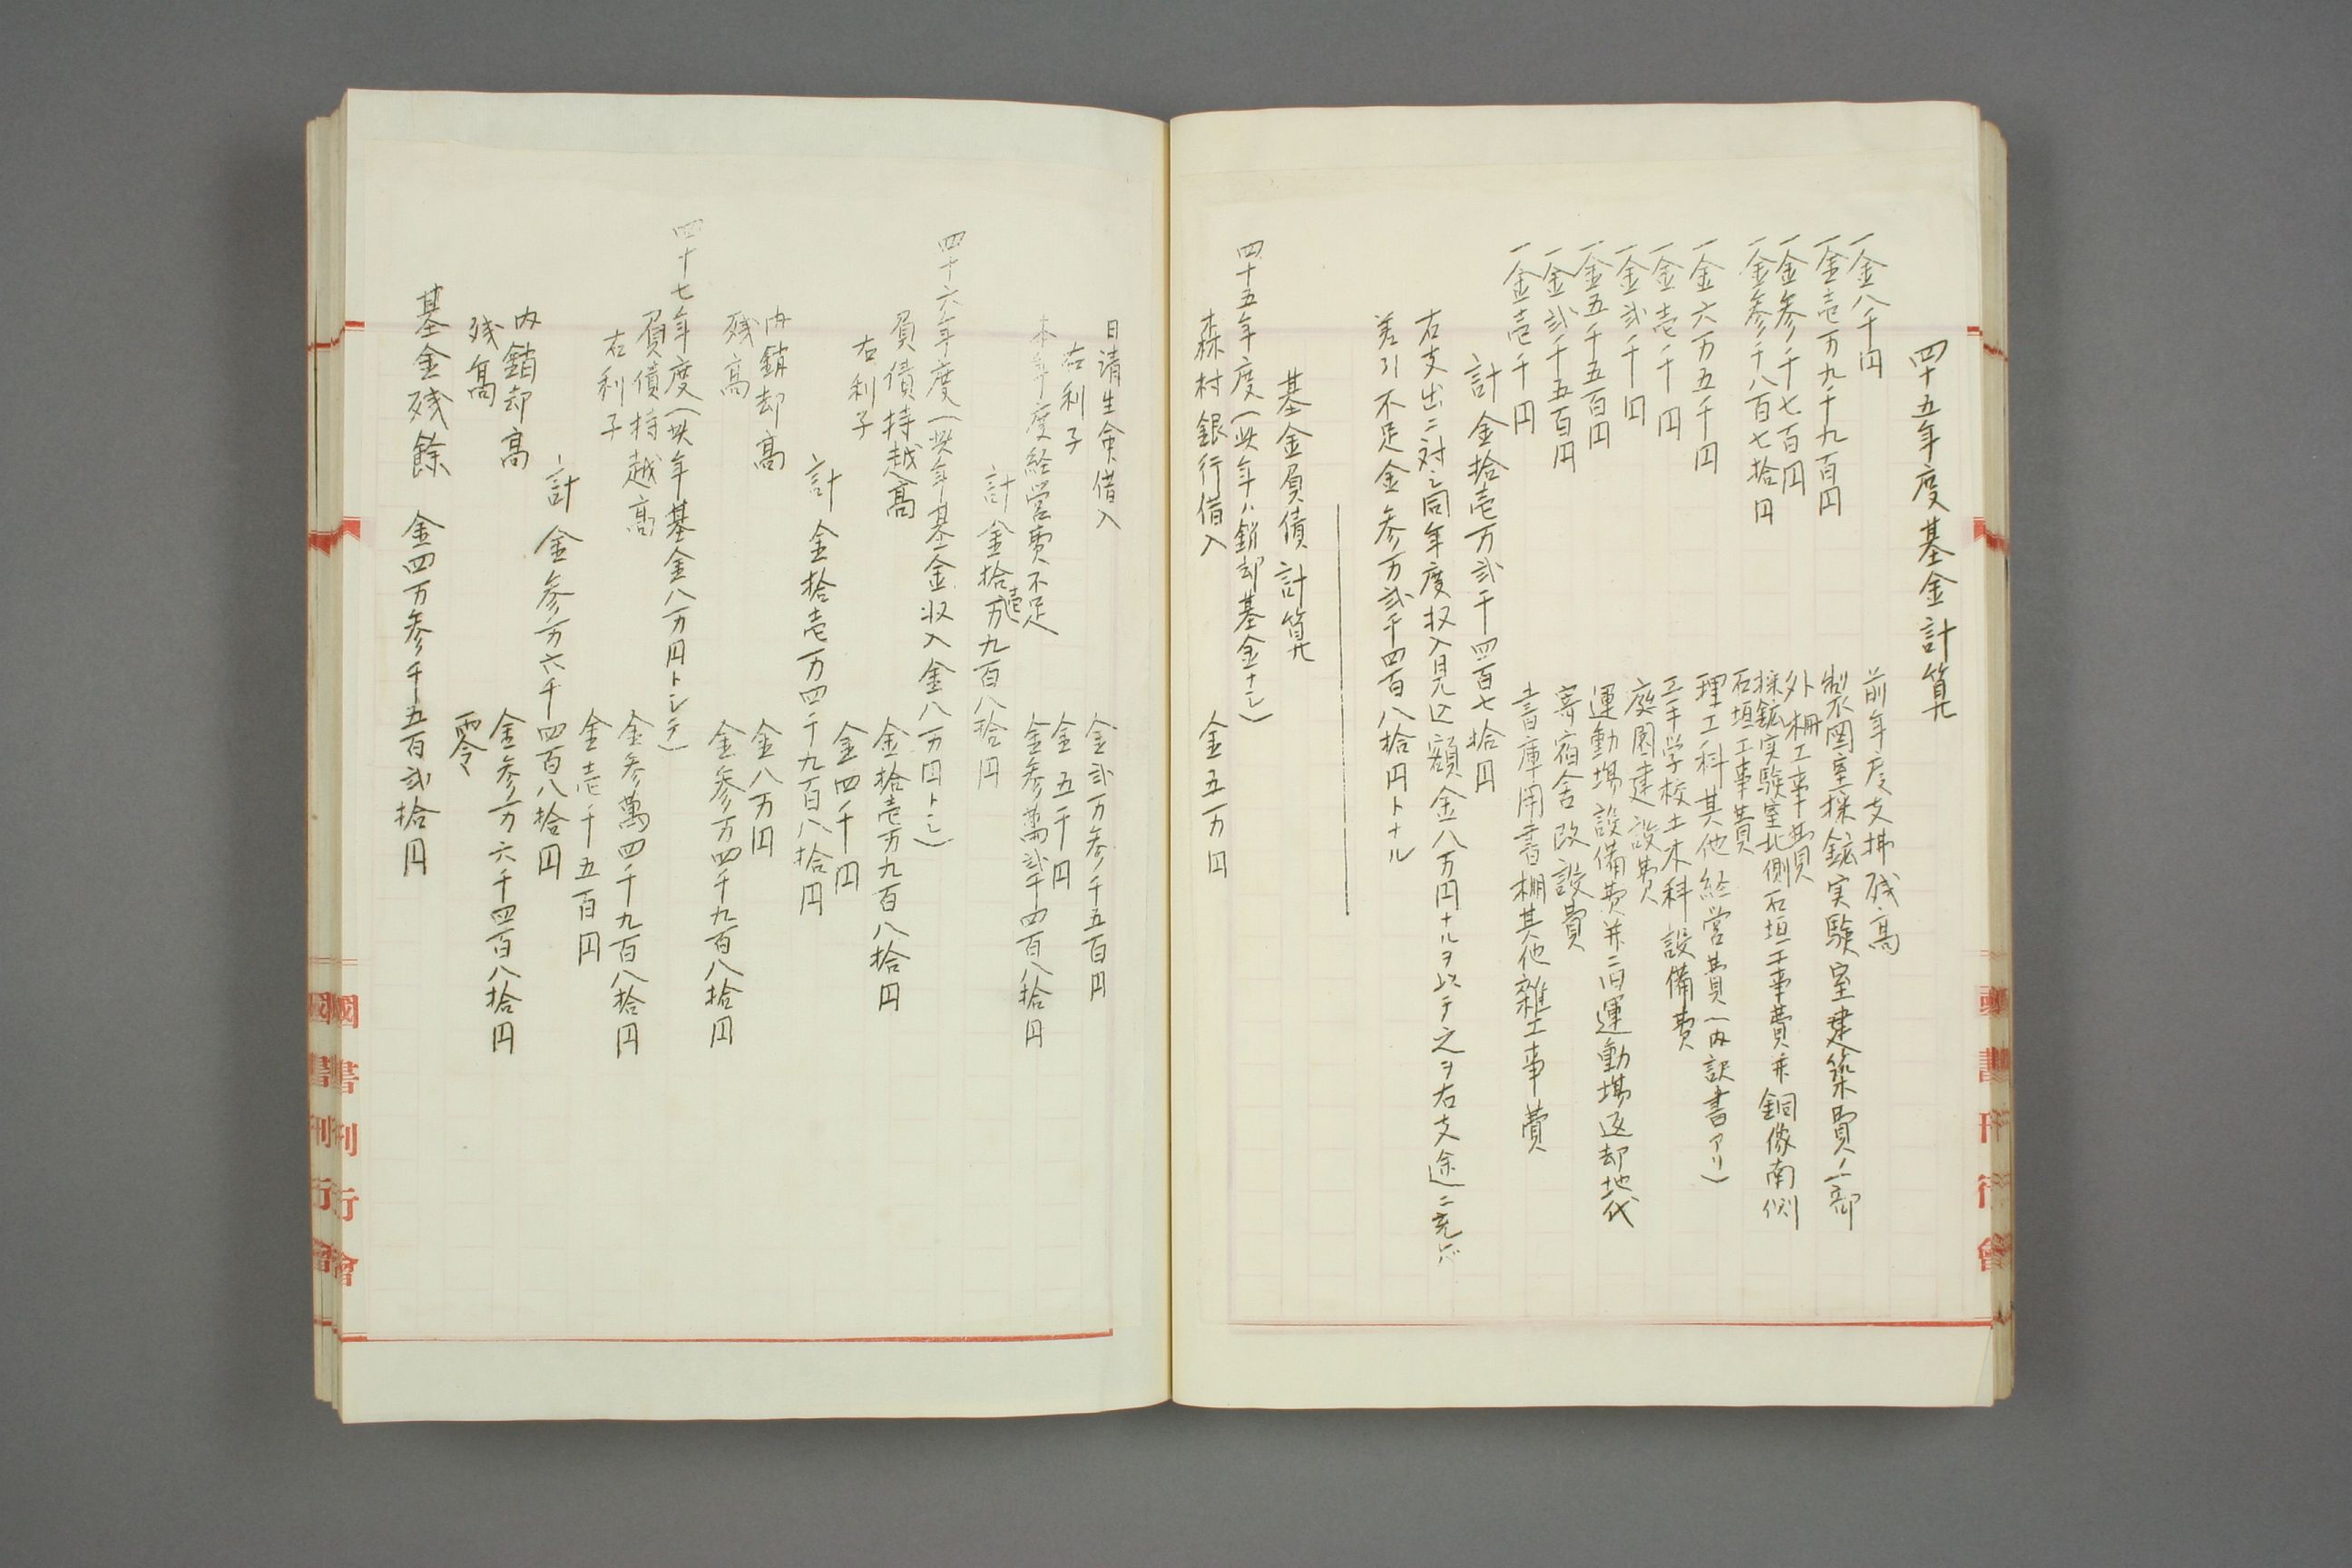 四十五年度基金計算
一金八千円 前年度支拂残高
一金壱万九千九百円 製図室採鉱実験室建築費ノ一部
一金参千七百円 外柵工事費
一金参千八百七拾円 採鉱実験室北側石垣工事費并銅像南側
石垣工事費
一金六万五千円 理工科其他経営費(内訳書アリ)
一金壱千円 工手学校土木科設備費
一金弐千円 庭園建設費
一金五千五百円 運動場設備費并ニ旧運動場返却地代
一金弐千五百円 寄宿舎改設費
一金壱千円 書庫用書棚其他雑工事費
計金拾壱万弐千四百七拾円
右支出ニ対シ同年度収入見込額金八万円ナルヲ以テ之ヲ右支途ニ充ツ
差引不足金参万弐千四百八拾円トナル
基金負債計算
四十五年度(此年ハ銷却基金ナシ)
森村銀行借入 金五万円
日清生命借入 金弐万参千五百円
右利子 金五千円
本年度経営費不足 金参萬弐千四百八拾円
計金拾壱万九百八拾円
四十六年度(此年基金収入金八万円トシ)
負債持越高 金拾壱万九百八拾円
右利子 金四千円
計金拾壱万四千九百八拾円
内銷却高 金八万円
残高 金参万四千九百八拾円
四十七年度(此年基金八万円トシテ)
負債持越高 金参萬四千九百八拾円
右利子 金壱千五百円
計金参万六千四百八拾円
内銷却高 金参万六千四百八拾円
残高 零
基金残餘 金四万参千五百弐拾円
國書刊行會
國書刊行會